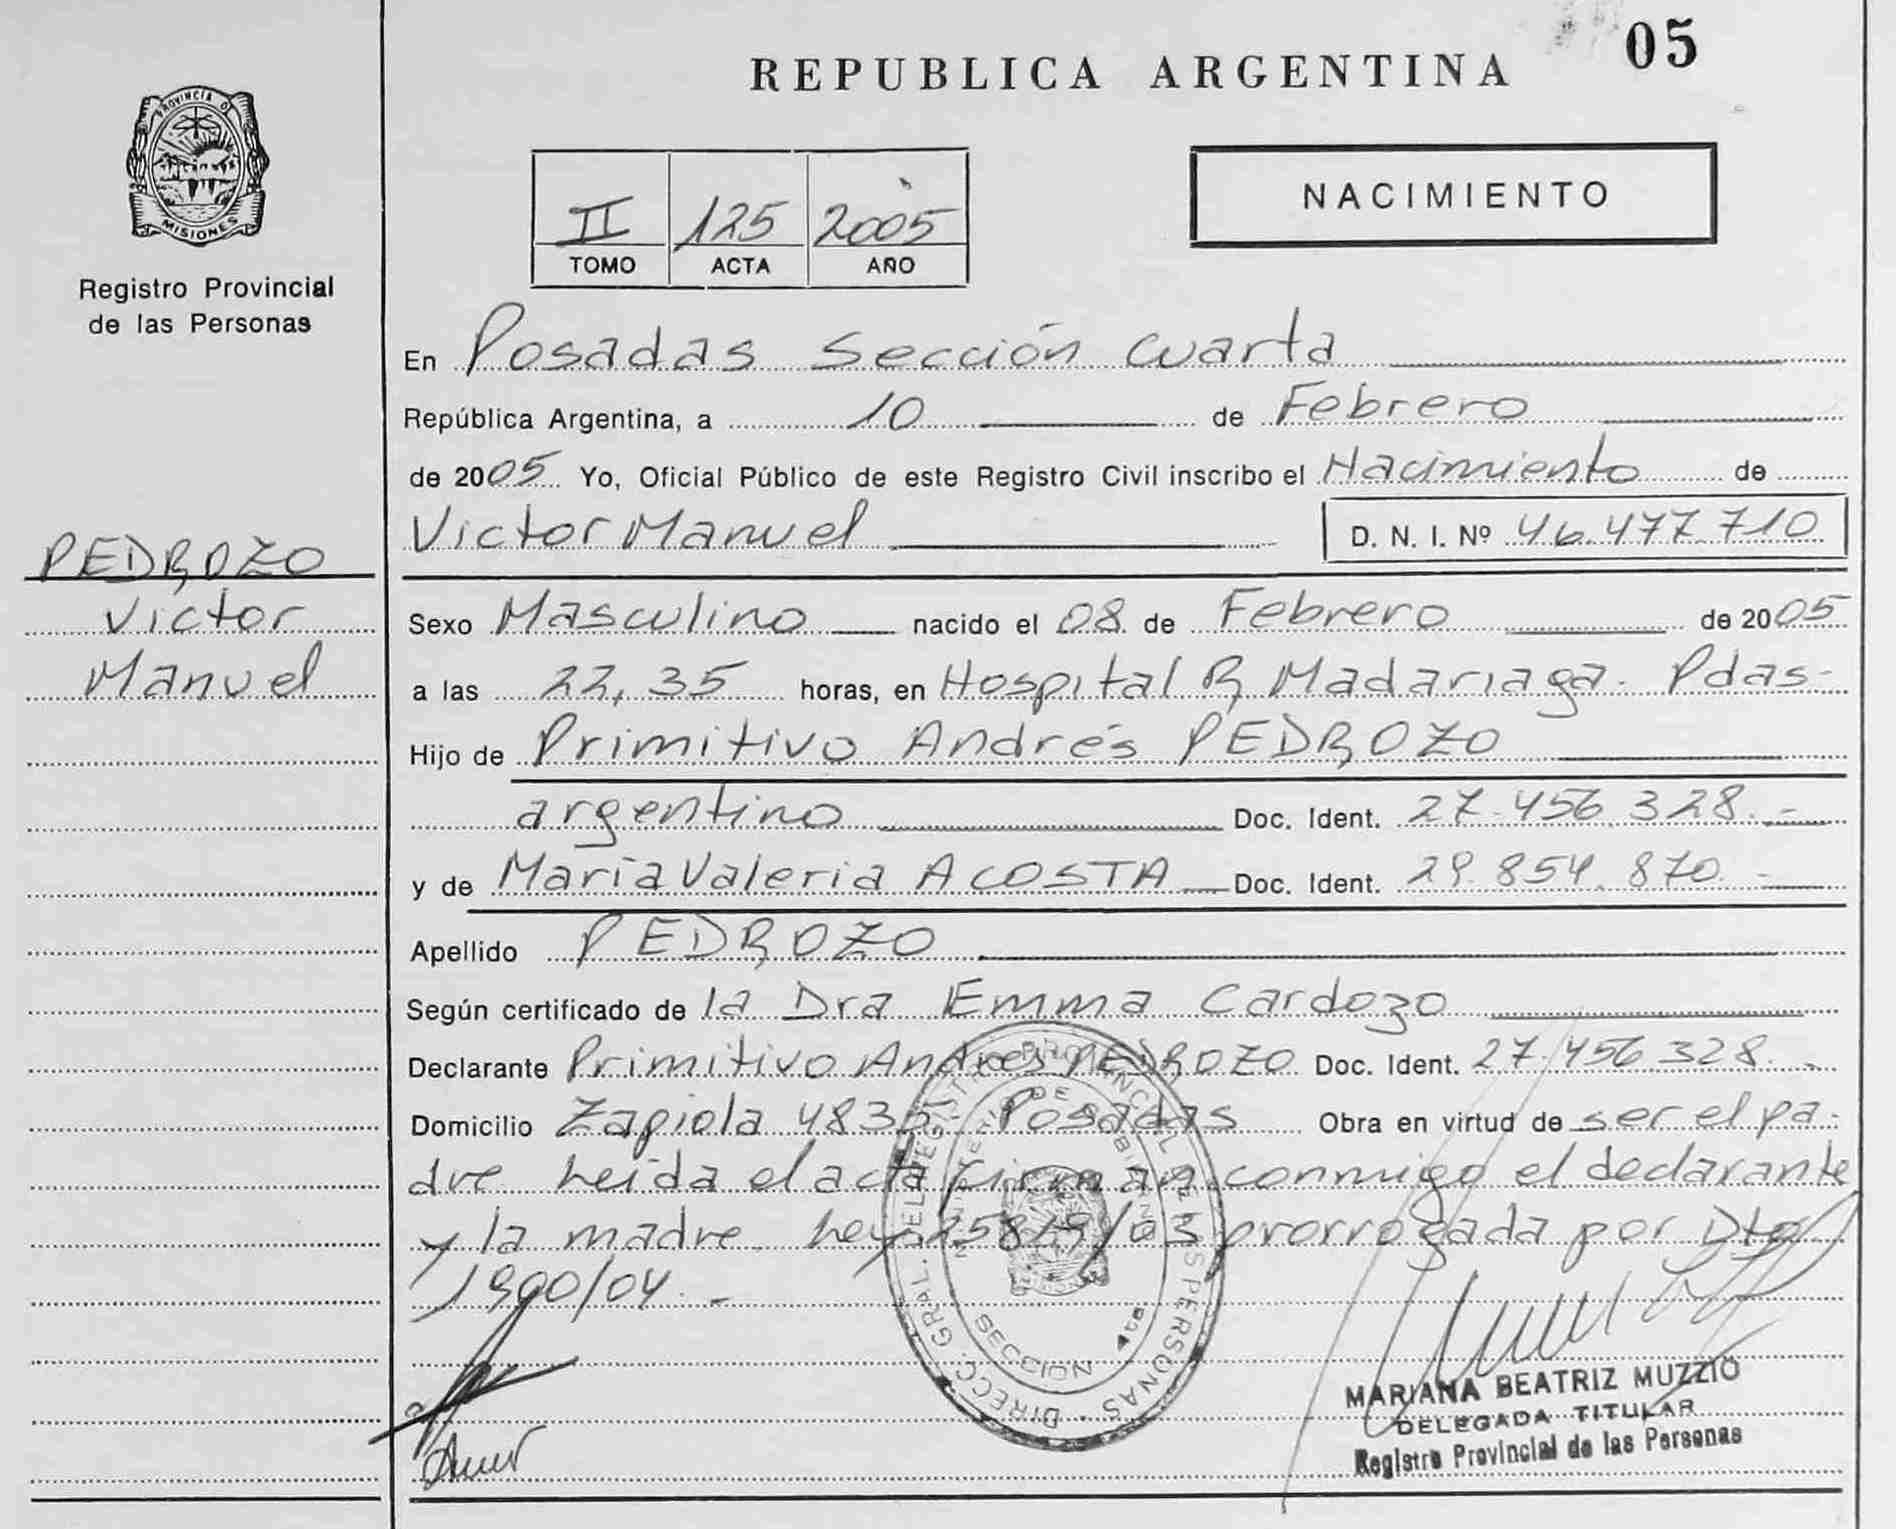 REPUBLICA ARGENTINA 05
PROVINCIA D
MISIONES
Registro Provincial
de las Personas
II 125 2005
TOMO ACTA AÑO
NACIMIENTO
En Posadas Sección Cuarta
República Argentina, a 10 de Febrero
de 2005 Yo, Oficial Público de este Registro Civil inscribo el Nacimiento de
Victor Manuel D. N. I. Nº 46.477.710
PEDROZO
Victor
Manuel
Sexo Masculino nacido el 08 de Febrero de 2005
a las 22,35 horas, en Hospital R. Madariaga. Pdas-
Hijo de Primitivo Andrés PEDROZO
argentino Doc. Ident. 27.456.328.-
y de María Valeria ACOSTA Doc. Ident. 29.854.870.-
Apellido PEDROZO
Según certificado de la Dra Emma Cardozo
Declarante Primitivo Andres PEDROZO Doc. Ident. 27.456.328.-
Domicilio Zapiola 4835. Posadas Obra en virtud de ser el pa-
dre leida el acta firman conmigo el declarante
y la madre. Ley 25819/03 prorrogada por Dto
1900/04.-
DIRECC. GRAL. DEL REGISTRO PROVINCIAL DE LAS PERSONAS
SECCION 4ta
MARIANA BEATRIZ MUZZIO
DELEGADA TITULAR
Registro Provincial de las Personas